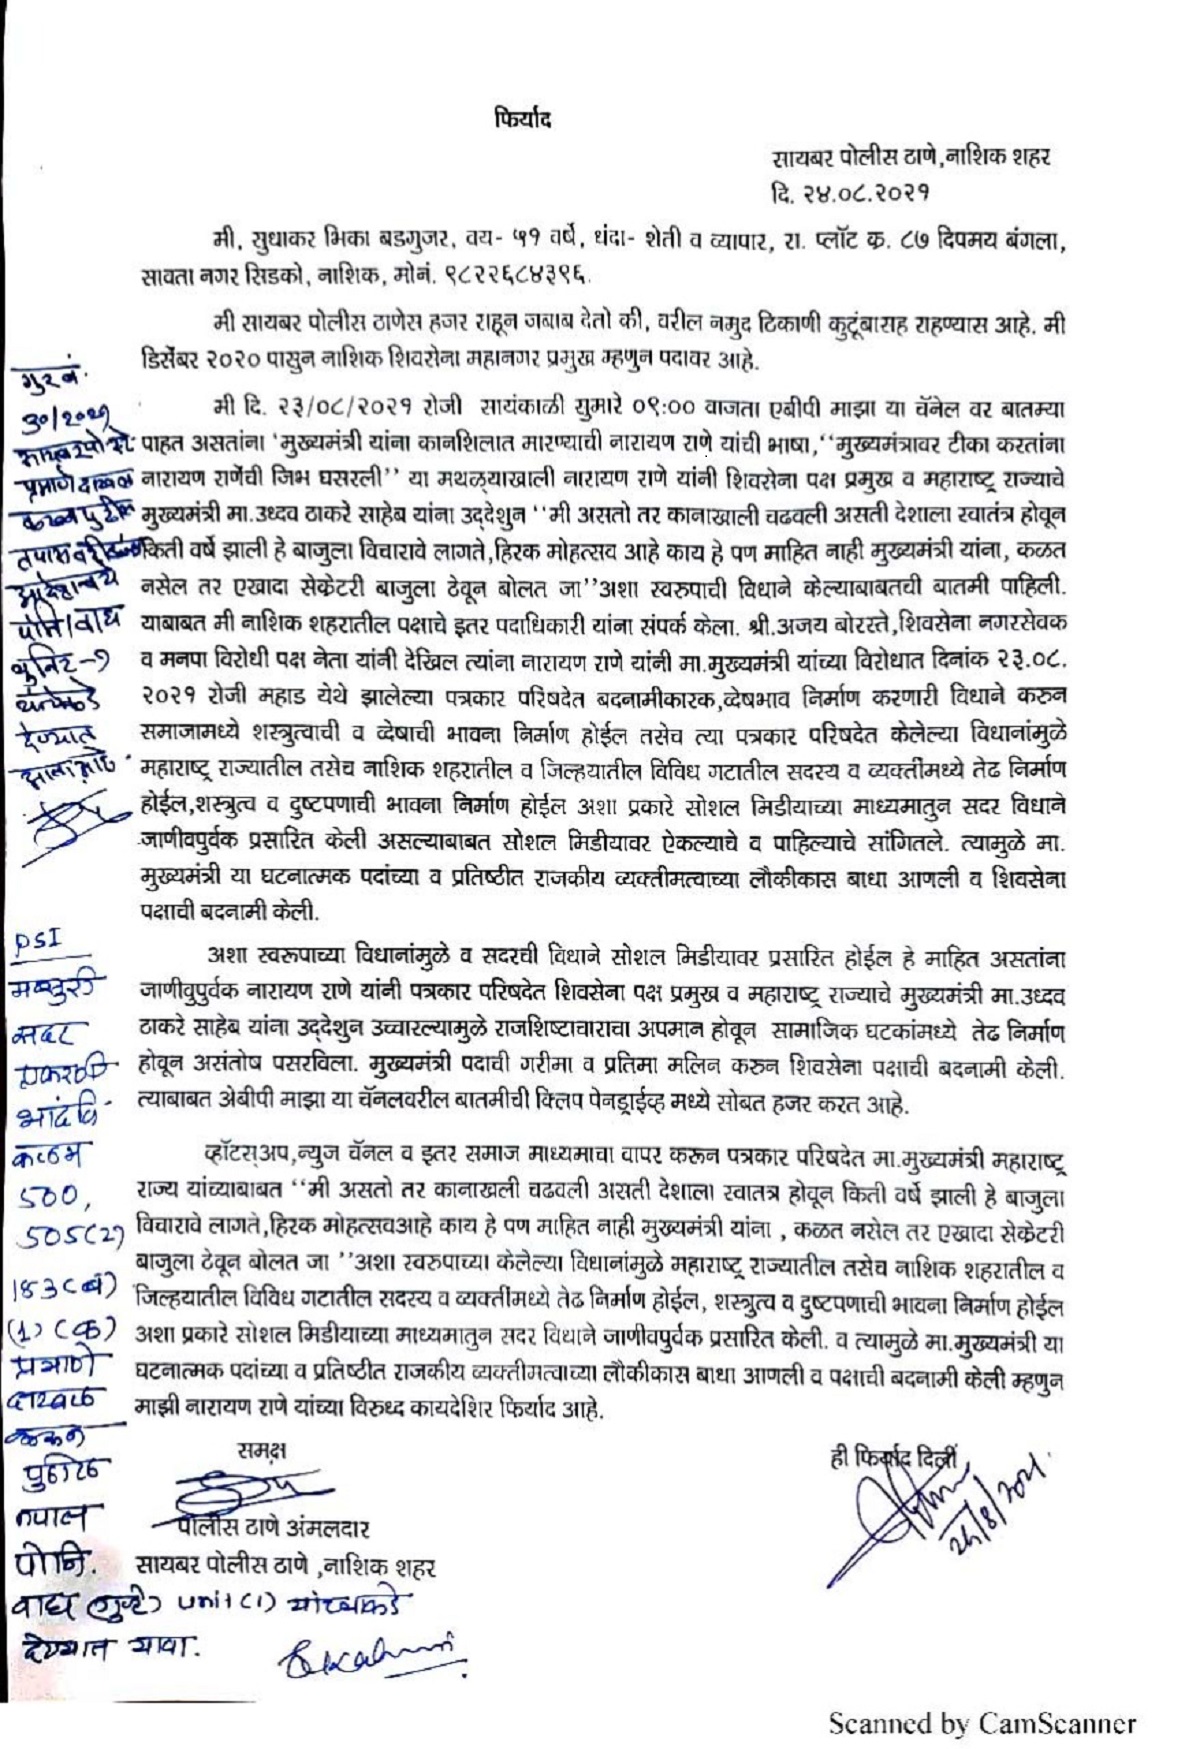 फिर्याद
सायबर पोलीस ठाणे,नाशिक शहर
दि. २४.०८.२०२१
मी, सुधाकर भिका बडगुजर, वय- ५१ वर्षे, धंदा- शेती व व्यापार, रा. प्लॉट क्र. ८७ दिपमय बंगला,
सावता नगर सिडको, नाशिक, मोनं. ९८२२६८४३९६.
मी सायबर पोलीस ठाणेस हजर राहून जबाब देतो की, वरील नमुद ठिकाणी कुटूंबासह राहण्यास आहे. मी
डिसेंबर २०२० पासुन नाशिक शिवसेना महानगर प्रमुख म्हणुन पदावर आहे.
मी दि. २३/०८/२०२१ रोजी सायंकाळी सुमारे ०९:०० वाजता एबीपी माझा या चॅनेल वर बातम्या
पाहत असतांना 'मुख्यमंत्री यांना कानशिलात मारण्याची नारायण राणे यांची भाषा,''मुख्यमंत्रावर टीका करतांना
नारायण राणेंची जिभ घसरली'' या मथळ्याखाली नारायण राणे यांनी शिवसेना पक्ष प्रमुख व महाराष्ट्र राज्याचे
मुख्यमंत्री मा.उध्दव ठाकरे साहेब यांना उद्देशुन ''मी असतो तर कानाखाली चढवली असती देशाला स्वातंत्र होवून
किती वर्षे झाली हे बाजुला विचारावे लागते,हिरक मोहत्सव आहे काय हे पण माहित नाही मुख्यमंत्री यांना, कळत
नसेल तर एखादा सेक्रेटरी बाजुला ठेवून बोलत जा''अशा स्वरुपाची विधाने केल्याबाबतची बातमी पाहिली.
याबाबत मी नाशिक शहरातील पक्षाचे इतर पदाधिकारी यांना संपर्क केला. श्री.अजय बोरस्ते,शिवसेना नगरसेवक
व मनपा विरोधी पक्ष नेता यांनी देखिल त्यांना नारायण राणे यांनी मा.मुख्यमंत्री यांच्या विरोधात दिनांक २३.०८.
२०२१ रोजी महाड येथे झालेल्या पत्रकार परिषदेत बदनामीकारक,व्देषभाव निर्माण करणारी विधाने करुन
समाजामध्ये शस्त्रुत्वाची व व्देषाची भावना निर्माण होईल तसेच त्या पत्रकार परिषदेत केलेल्या विधानांमुळे
महाराष्ट्र राज्यातील तसेच नाशिक शहरातील व जिल्हयातील विविध गटातील सदस्य व व्यक्तींमध्ये तेढ निर्माण
होईल,शस्त्रुत्व व दुष्टपणाची भावना निर्माण होईल अशा प्रकारे सोशल मिडीयाच्या माध्यमातुन सदर विधाने
जाणीवपुर्वक प्रसारित केली असल्याबाबत सोशल मिडीयावर ऐकल्याचे व पाहिल्याचे सांगितले. त्यामुळे मा.
मुख्यमंत्री या घटनात्मक पदांच्या व प्रतिष्ठीत राजकीय व्यक्तीमत्वाच्या लौकीकास बाधा आणली व शिवसेना
पक्षाची बदनामी केली.
अशा स्वरूपाच्या विधानांमुळे व सदरची विधाने सोशल मिडीयावर प्रसारित होईल हे माहित असतांना
जाणीवुपुर्वक नारायण राणे यांनी पत्रकार परिषदेत शिवसेना पक्ष प्रमुख व महाराष्ट्र राज्याचे मुख्यमंत्री मा.उध्दव
ठाकरे साहेब यांना उद्देशुन उच्चारल्यामुळे राजशिष्टाचाराचा अपमान होवून सामाजिक घटकांमध्ये तेढ निर्माण
होवून असंतोष पसरविला. मुख्यमंत्री पदाची गरीमा व प्रतिमा मलिन करुन शिवसेना पक्षाची बदनामी केली.
त्याबाबत अेबीपी माझा या चॅनलवरील बातमीची क्लिप पेनड्राईव्ह मध्ये सोबत हजर करत आहे.
व्हॉटस्अप,न्युज चॅनल व इतर समाज माध्यमाचा वापर करून पत्रकार परिषदेत मा.मुख्यमंत्री महाराष्ट्र
राज्य यांच्याबाबत ''मी असतो तर कानाखली चढवली असती देशाला स्वातत्र होवून किती वर्षे झाली हे बाजुला
विचारावे लागते,हिरक मोहत्सवआहे काय हे पण माहित नाही मुख्यमंत्री यांना , कळत नसेल तर एखादा सेक्रेटरी
बाजुला ठेवून बोलत जा ''अशा स्वरुपाच्या केलेल्या विधानांमुळे महाराष्ट्र राज्यातील तसेच नाशिक शहरातील व
जिल्हयातील विविध गटातील सदस्य व व्यक्तींमध्ये तेढ निर्माण होईल, शस्त्रुत्व व दुष्टपणाची भावना निर्माण होईल
अशा प्रकारे सोशल मिडीयाच्या माध्यमातुन सदर विधाने जाणीवपुर्वक प्रसारित केली. व त्यामुळे मा.मुख्यमंत्री या
घटनात्मक पदांच्या व प्रतिष्ठीत राजकीय व्यक्तीमत्वाच्या लौकीकास बाधा आणली व पक्षाची बदनामी केली म्हणुन
माझी नारायण राणे यांच्या विरुध्द कायदेशिर फिर्याद आहे.
समक्ष
पोलीस ठाणे अंमलदार
सायबर पोलीस ठाणे ,नाशिक शहर
ही फिर्याद दिली
गुरनं.
30/2021
प्रमाणे दाखल
करुन पुढील
युनिट-१
यांचेकडे
देण्यात
आला आहे.
PSI
सदर
भादंवि
कलम
500,
505(2)
153(ब)
(1) (क)
प्रमाणे
दाखल
करून
पुढील
तपास
पोनि.
वाघ (गुन्हे) unit(1) यांच्याकडे
देण्यात यावा.
Scanned by CamScanner